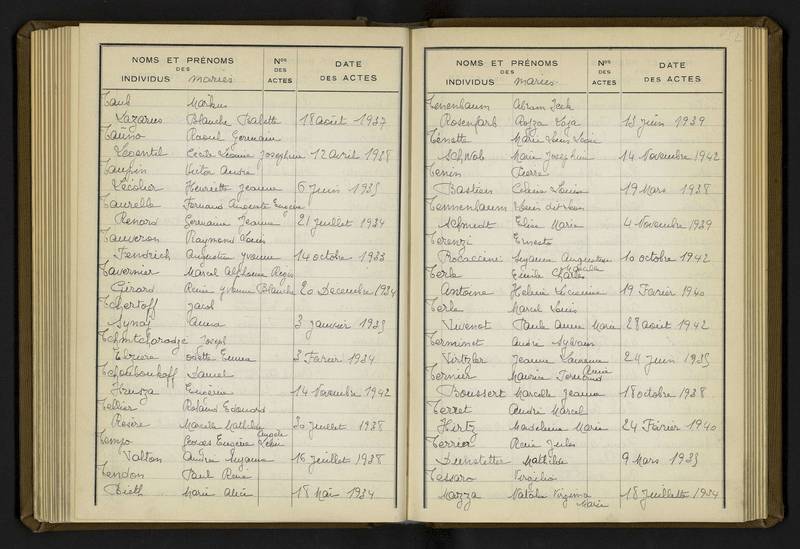 NOMS ET PRÉNOMS
DES
INDIVIDUS mariés
Nos
DES
ACTES
DATE
DES ACTES
Taub Markus
Lazarus Blanche Isabelle 18 août 1937
Tauno Raoul Germain
Legentil Cécile Léonie Joséphine 12 avril 1938
Taupin Victor André
Lécolier Henriette Jeanne 6 juin 1935
Taurelle Fernand Auguste Eugène
Renard Germaine Jeanne 21 juillet 1934
Tauveron Raymond Louis
Fendrich Augustine Yvonne 14 octobre 1933
Tavernier Marcel Alphonse Roger
Girard Renée Yvonne Blanche 20 Decembre 1934
Tchertoff Jacob
Synaj Anna 3 janvier 1935
Tchmtchoradze Joseph
Odette Emma 3 Février 1934
Tchouboukoff Daniel
Eugénie 14 Novembre 1942
Tellier Roland Edouard
Marcelle Mathilde 30 juillet 1938
Tempo Georges Eugène
Valton Andrée Suzanne 16 juillet 1938
Tendon Paul René
Bieth Marie Alice 18 Mai 1934
NOMS ET PRÉNOMS
DES
INDIVIDUS mariés
Nos
DES
ACTES
DATE
DES ACTES
Tenenbaum Abram Icek
Rosenfarb Rojza Loja 13 juin 1939
Ténette Marie Louis
Schwob Marie Josephine 14 Novembre 1942
Tenin Pierre
Bastien Louise 19 Mars 1938
Tennenbaum Louis dit Léon
Schmidt Elise Marie 4 Novembre 1939
Terenzi Ernesto
Suzanne Augustine 10 octobre 1942
Terle Emile Charles
Antoine Helene Lucienne 19 Février 1940
Terle Marcel Louis
Vuvenot Paule Anne Marie 28 août 1942
Terminet André Sylvain
Virtzler Jeanne 24 juin 1935
Ternier Maurice Fernand
Boussert Marcelle Jeanne 18 octobre 1938
Terret André Marcel
Hertz Madeleine Marie 24 Février 1940
Terrier René Jules
Dunstetter Mathilde 9 Mars 1935
Tessaro Virgilio
Mazza Natalia Virginia 18 juillette 1934
Maria